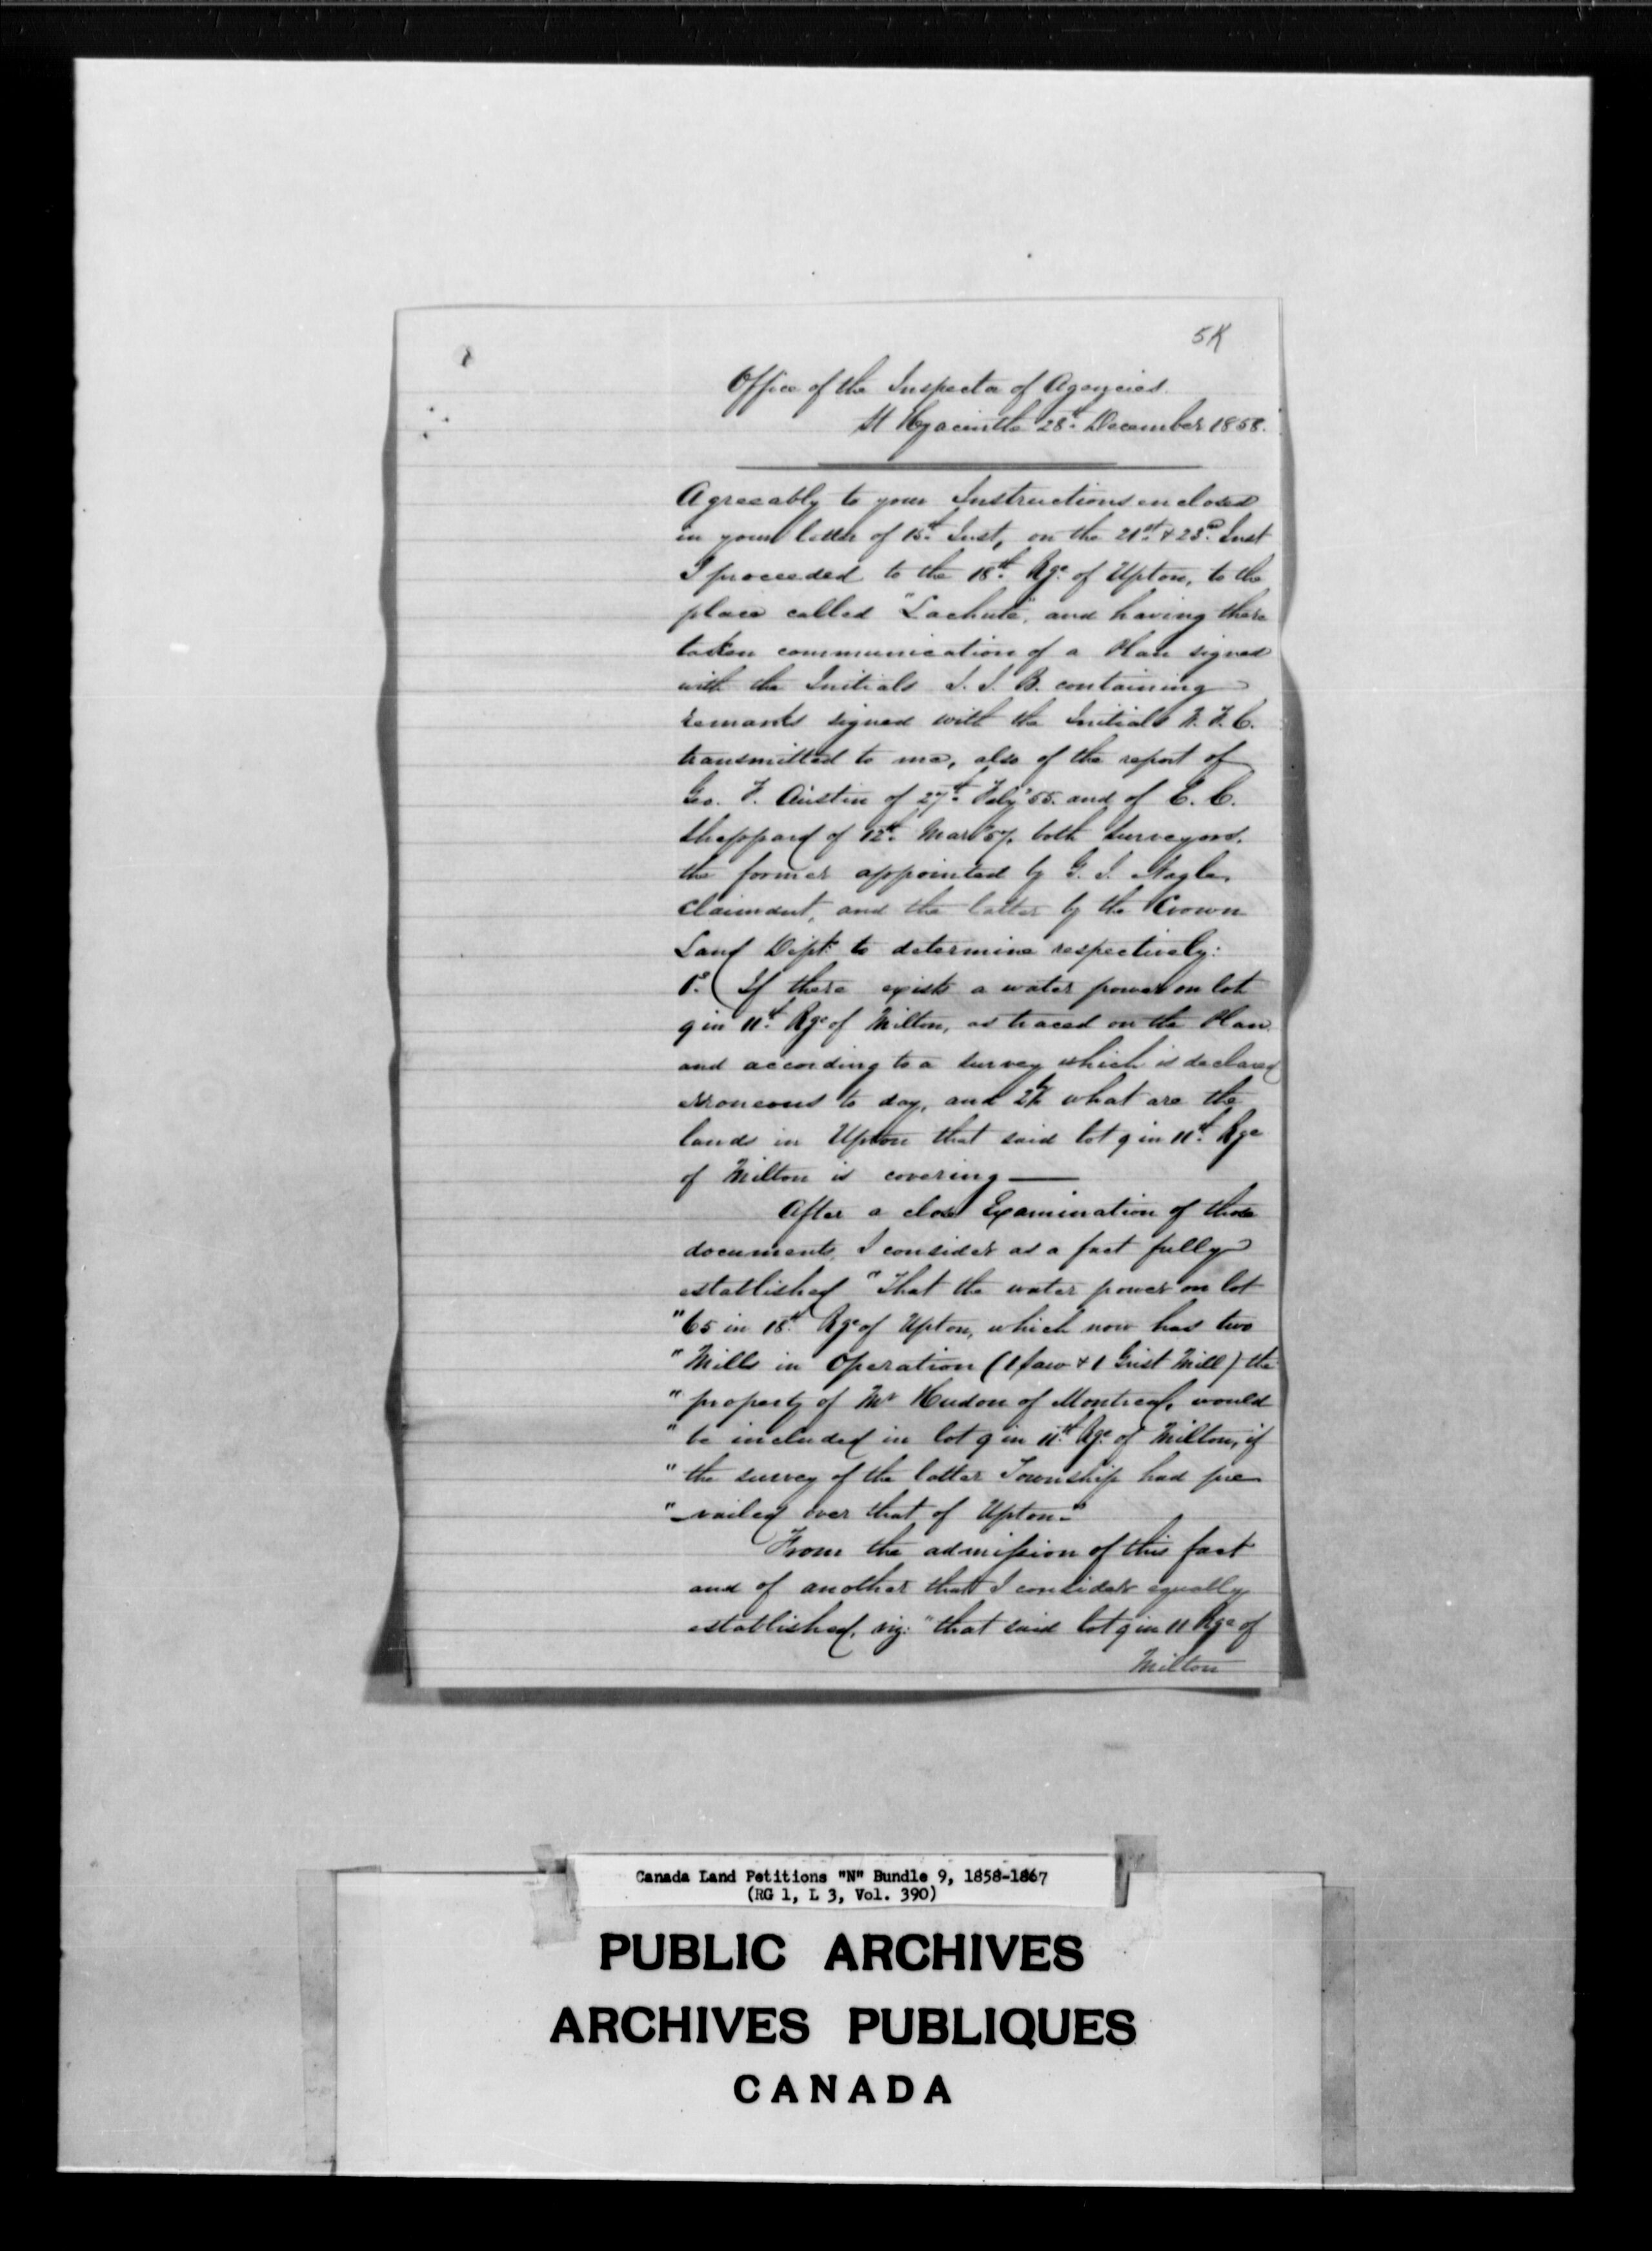 5K
Office of the Inspector of Agencies.
St Hyacinthe 28th December 1858.
Agreeably to your Instructions enclosed
in your letter of 15th Inst, on the 21st & 23rd Inst
I proceeded to the 18th Rge of Upton, to the
place called "Lachute", and having there
taken communication of a Plan signed
with the Initials containing
remarks signed with the Initials
transmitted to me, also of the report of
Geo. F. Austin of 27th Feby 55. and of E. C.
Sheppard of 12th Mar 57. both Surveyors.
the former appointed by Nagle,
Claimant, and the latter by the Crown
Land Dept. to determine respectively:
1o. If there exists a water power on lot
9 in 11th Rge of Milton, as traced on the Plan
and according to a survey which is declared
erroneous to day, and 2ly what are the
lands in Upton that said lot 9 in 11th Rge
of Milton is covering —
After a close Examination of those
documents, I consider as a fact fully
established "That the water power on lot
"65 in 18th Rge of Upton, which now has two
"Mills in Operation (1 Saw & 1 Grist Mill) the
"property of Mr Hudon of Montreal, would
"be included in lot 9 in 11th Rge of Milton, if
"the survey of the latter Township had pre
"-vailed over that of Upton."
From the admission of this fact
and of another that I consider equally
established, viz: "that said lot 9 in 11 Rge of
Milton
Canada Land Petitions "N" Bundle 9, 1858-1867
(RG 1, L 3, Vol. 390)
PUBLIC ARCHIVES
ARCHIVES PUBLIQUES
CANADA